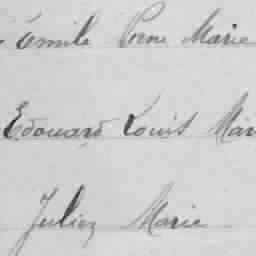 Émile Pierre Marie
Edouard Louis Mar
Julien Marie